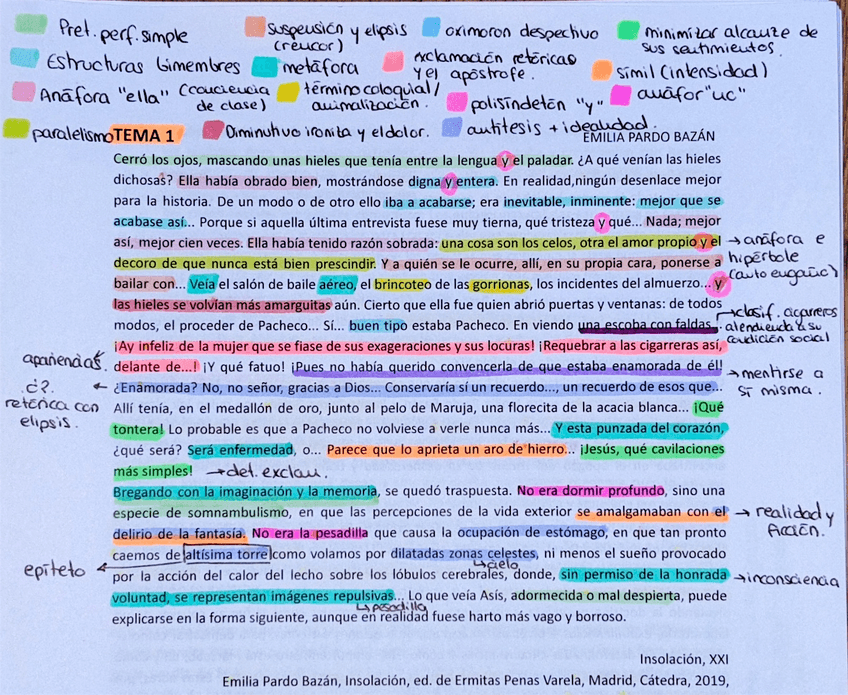 Pret. perf. simple
Suspensión y elipsis (rencor)
oximoron despectivo
minimizar alcanze de sus sentimientos.
Estructuras bimembres
metáfora
exclamación retóricas y el apóstrofe.
símil (intensidad)
Anáfora "ella" (conciencia de clase)
término coloquial/ animalización.
polisíndeton "y"
anáfor "uc"
paralelismo
Diminutivo ironiza y el dolor.
antítesis + idealidad.
TEMA 1
EMILIA PARDO BAZÁN
Cerró los ojos, mascando unas hieles que tenía entre la lengua y el paladar. ¿A qué venían las hieles
dichosas? Ella había obrado bien, mostrándose digna y entera. En realidad,ningún desenlace mejor
para la historia. De un modo o de otro ello iba a acabarse; era inevitable, inminente: mejor que se
acabase así... Porque si aquella última entrevista fuese muy tierna, qué tristeza y qué... Nada; mejor
así, mejor cien veces. Ella había tenido razón sobrada: una cosa son los celos, otra el amor propio y el
decoro de que nunca está bien prescindir. Y a quién se le ocurre, allí, en su propia cara, ponerse a
bailar con... Veía el salón de baile aéreo, el brincoteo de las gorrionas, los incidentes del almuerzo... y
las hieles se volvían más amarguitas aún. Cierto que ella fue quien abrió puertas y ventanas: de todos
modos, el proceder de Pacheco... Sí... buen tipo estaba Pacheco. En viendo una escoba con faldas...
¡Ay infeliz de la mujer que se fiase de sus exageraciones y sus locuras! ¡Requebrar a las cigarreras así,
delante de...! ¡Y qué fatuo! ¡Pues no había querido convencerla de que estaba enamorada de él!
¿Enamorada? No, no señor, gracias a Dios... Conservaría sí un recuerdo..., un recuerdo de esos que...
Allí tenía, en el medallón de oro, junto al pelo de Maruja, una florecita de la acacia blanca... ¡Qué
tontera! Lo probable es que a Pacheco no volviese a verle nunca más... Y esta punzada del corazón,
¿qué será? Será enfermedad, o... Parece que lo aprieta un aro de hierro... ¡Jesús, qué cavilaciones
más simples! → det. exclam.
Bregando con la imaginación y la memoria, se quedó traspuesta. No era dormir profundo, sino una
especie de somnambulismo, en que las percepciones de la vida exterior se amalgamaban con el
delirio de la fantasía. No era la pesadilla que causa la ocupación de estómago, en que tan pronto
caemos de altísima torre como volamos por dilatadas zonas celestes, ni menos el sueño provocado
cielo
por la acción del calor del lecho sobre los lóbulos cerebrales, donde, sin permiso de la honrada
voluntad, se representan imágenes repulsivas... Lo que veía Asís, adormecida o mal despierta, puede
pesadilla
explicarse en la forma siguiente, aunque en realidad fuese harto más vago y borroso.
→ anáfora e
hipérbole
(auto engaño)
clasif. cigarreras
atendiendo a su
condición social
→ mentirse a
sí misma.
apariencias.
¿?.
retórica con
elipsis.
→ realidad y
ficción.
epíteto
→ inconsciencia
Insolación, XXI
Emilia Pardo Bazán, Insolación, ed. de Ermitas Penas Varela, Madrid, Cátedra, 2019,